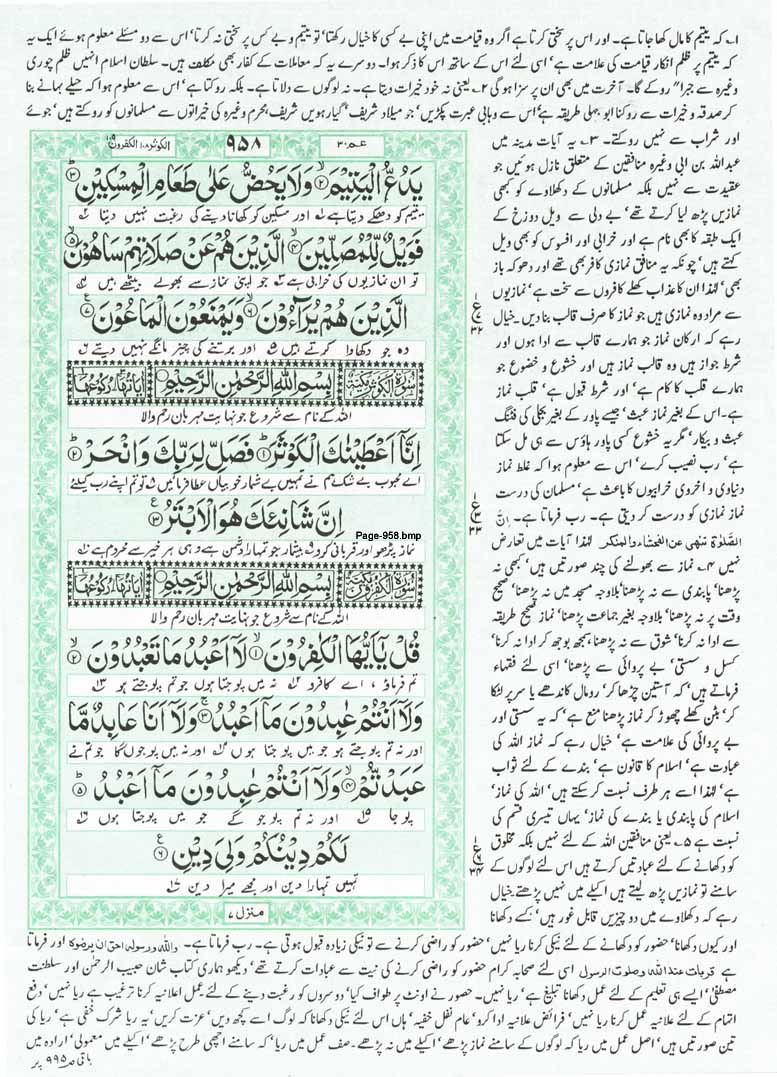 ۱؎ کہ یتیم کا مال کھا جاتا ہے۔ اور اس پر سختی کرتا ہے اگر وہ قیامت میں اپنی بے کسی کا خیال رکھتا، تو یتیم و بے کس پر سختی نہ کرتا، اس سے دو مسئلے معلوم ہوئے ایک یہ
کہ یتیم پر ظلم انکار قیامت کی علامت ہے، اسی لئے اس کے ساتھ اس کا ذکر ہوا۔ دوسرے یہ کہ معاملات کے کفار بھی مکلف ہیں۔ سلطان اسلام انہیں ظلم چوری
وغیرہ سے جبراً روکے گا۔ آخرت میں بھی ان پر سزا ہو گی ۲؎ یعنی نہ خود خیرات دیتا ہے۔ نہ لوگوں سے دلاتا ہے۔ بلکہ روکتا ہے، اس سے معلوم ہوا کہ حیلے بہانے بنا
کر صدقہ و خیرات سے روکنا ابو جہلی طریقہ ہے، اس سے وہابی عبرت پکڑیں، جو میلاد شریف، گیارہویں شریف، محرم وغیرہ کی خیراتوں سے مسلمانوں کو روکتے ہیں، جوئے
اور شراب سے نہیں روکتے۔ ۳؎ یہ آیات مدینہ میں
عبداللہ بن ابی وغیرہ منافقین کے متعلق نازل ہوئیں جو
عقیدت سے نہیں بلکہ مسلمانوں کے دکھلاوے کو کبھی
نمازیں پڑھ لیا کرتے تھے، بے دلی سے ویل دوزخ کے
ایک طبقہ کا بھی نام ہے اور خرابی اور افسوس کو بھی ویل
کہتے ہیں، چونکہ یہ منافق نمازی کافر بھی تھے اور دھوکہ باز
بھی، لہٰذا ان کا عذاب کھلے کافروں سے سخت ہے، نمازیوں
سے مراد وہ نمازی ہیں جو نماز کا صرف قالب بنا دیں۔ خیال
رہے کہ ارکان نماز جو ہمارے قالب سے ادا ہوں اور
شرط جواز ہیں وہ قالب نماز ہیں اور خشوع و خضوع جو
ہمارے قلب کا کام ہے، اور شرط قبول ہے، قلب نماز
ہے۔ اس کے بغیر نماز عبث، جیسے پاور کے بغیر بجلی کی فٹنگ
عبث و بیکار، مگر یہ خشوع کسی پاور ہاؤس سے ہی مل سکتا
ہے، رب نصیب کرے، اس سے معلوم ہوا کہ غلط نماز
دنیاوی و اخروی خرابیوں کا باعث ہے، مسلمان کی درست
نماز نمازی کو درست کر دیتی ہے۔ رب فرماتا ہے۔ ان
الصلوٰۃ تنھی عن الفحشاء والمنکر لہٰذا آیات میں تعارض
نہیں ۴؎ نماز سے بھولنے کی چند صورتیں ہیں، کبھی نہ
پڑھنا، پابندی سے نہ پڑھنا، بلاوجہ مسجد میں نہ پڑھنا، صحیح
وقت پر نہ پڑھنا، بلاوجہ بغیر جماعت پڑھنا، نماز صحیح طریقہ
سے ادا نہ کرنا، شوق سے نہ پڑھنا، سمجھ بوجھ کر ادا نہ کرنا،
کسل و سستی، بے پروائی سے پڑھنا، اسی لئے فقہاء
فرماتے ہیں، کہ آستین چڑھا کر، رومال کاندھے یا سر پر لٹکا
کر، بٹن کھلے چھوڑ کر نماز پڑھنا منع ہے، کہ یہ سستی اور
بے پروائی کی علامت ہے، خیال رہے کہ نماز اللہ کی
عبادت ہے، اسلام کا قانون ہے، بندے کے لئے ثواب
ہے، لہٰذا اسے ہر طرف نسبت کر سکتے ہیں، اللہ کی نماز،
اسلام کی پابندی یا بندے کی نماز، یہاں تیسری قسم کی
نسبت ہے ۵؎ یعنی منافقین اللہ کے لئے نہیں بلکہ مخلوق
کو دکھانے کے لئے عبادتیں کرتے ہیں اس لئے لوگوں کے
سامنے تو نمازیں پڑھ لیتے ہیں اکیلے میں نہیں پڑھتے۔ خیال
رہے کہ دکھلاوے میں دو چیزیں قابل غور ہیں، کسے دکھانا
عم ۳۰
۹۵۸
الکوثر ۱۰۸ الکفرون ۱۰۹
یَدُعُّ الْیَتِیْمَ ۙ﴿۲﴾ وَلَا یَحُضُّ عَلٰی طَعَامِ الْمِسْكِیْنِ ؕ﴿۳﴾
یتیم کو دھکے دیتا ہے اور مسکین کو کھانا دینے کی رغبت نہیں دیتا
فَوَیْلٌ لِّلْمُصَلِّیْنَ ۙ﴿۴﴾ الَّذِیْنَ هُمْ عَنْ صَلَاتِهِمْ سَاهُوْنَ ۙ﴿۵﴾
تو ان نمازیوں کی خرابی ہے جو اپنی نماز سے بھولے بیٹھے ہیں
الَّذِیْنَ هُمْ یُرَآءُوْنَ ۙ﴿۶﴾ وَیَمْنَعُوْنَ الْمَاعُوْنَ ﴿۷﴾
وہ جو دکھاوا کرتے ہیں اور برتنے کی چیز مانگے نہیں دیتے
سُوْرَةُ الْكَوْثَرِ مَكِّیَّةٌ بِسْمِ اللّٰهِ الرَّحْمٰنِ الرَّحِیْمِ اٰیَاتُهَا ۳ رُكُوْعُهَا ۱
اللہ کے نام سے شروع جو نہایت مہربان رحم والا
اِنَّاۤ اَعْطَیْنٰكَ الْكَوْثَرَ ؕ﴿۱﴾ فَصَلِّ لِرَبِّكَ وَانْحَرْ ؕ﴿۲﴾
اے محبوب بے شک ہم نے تمہیں بے شمار خوبیاں عطا فرمائیں تو تم اپنے رب کیلئے
اِنَّ شَانِئَكَ هُوَ الْاَبْتَرُ ﴿۳﴾
Page-958.bmp
نماز پڑھو اور قربانی کرو بیشک جو تمہارا دشمن ہے وہی ہر خیر سے محروم ہے
سُوْرَةُ الْكٰفِرُوْنَ مَكِّیَّةٌ بِسْمِ اللّٰهِ الرَّحْمٰنِ الرَّحِیْمِ اٰیَاتُهَا ۶ رُكُوْعُهَا ۱
اللہ کے نام سے شروع جو نہایت مہربان رحم والا
قُلْ یٰۤاَیُّهَا الْكٰفِرُوْنَ ۙ﴿۱﴾ لَاۤ اَعْبُدُ مَا تَعْبُدُوْنَ ۙ﴿۲﴾
تم فرماؤ اے کافرو نہ میں پوجتا ہوں جو تم پوجتے ہو
وَلَاۤ اَنْتُمْ عٰبِدُوْنَ مَاۤ اَعْبُدُ ۚ﴿۳﴾ وَلَاۤ اَنَا عَابِدٌ مَّا
اور نہ تم پوجتے ہو جو میں پوجتا ہوں اور نہ میں پوجوں گا جو تم نے
عَبَدْتُّمْ ۙ﴿۴﴾ وَلَاۤ اَنْتُمْ عٰبِدُوْنَ مَاۤ اَعْبُدُ ؕ﴿۵﴾
پوجا اور نہ تم پوجو گے جو میں پوجتا ہوں
لَكُمْ دِیْنُكُمْ وَلِیَ دِیْنِ ﴿۶﴾
تمہیں تمہارا دین اور مجھے میرا دین
منزل ۷
ع ۳۲
ع ۳۳
ع ۳۴
اور کیوں دکھانا، حضور کو دکھانے کے لئے نیکی کرنا ریا نہیں، حضور کو راضی کرنے سے تو نیکی زیادہ قبول ہوتی ہے۔ رب فرماتا ہے۔ واللہ ورسولہ احق ان یرضوہ اور فرماتا
ہے قربات عند اللہ وصلوت الرسول اسی لئے صحابہ کرام حضور کو راضی کرنے کی نیت سے عبادات کرتے تھے، دیکھو ہماری کتاب شان حبیب الرحمٰن اور سلطنت
مصطفیٰ، ایسے ہی تعلیم کے لئے عمل دکھانا تبلیغ ہے، ریا نہیں۔ حضور نے اونٹ پر طواف کیا، دوسروں کو رغبت دینے کے لئے عمل اعلانیہ کرنا ترغیب ہے ریا نہیں، دفع
اتہام کے لئے علانیہ عمل کرنا ریا نہیں، فرائض علانیہ ادا کرو، عام نفل خفیہ، ہاں اس لئے نیکی دکھانا کہ لوگ اسے کچھ دیں، عزت کریں، یہ ریا شرک خفی ہے، ریا کی
تین صورتیں ہیں، اصل عمل میں ریا کہ لوگوں کے سامنے نماز پڑھے، اکیلے میں نہ پڑھے۔ صف عمل میں ریا، کہ سامنے اچھی طرح پڑھے، اکیلے میں معمولی، ارادہ میں
باقی ص ۹۹۵ پر